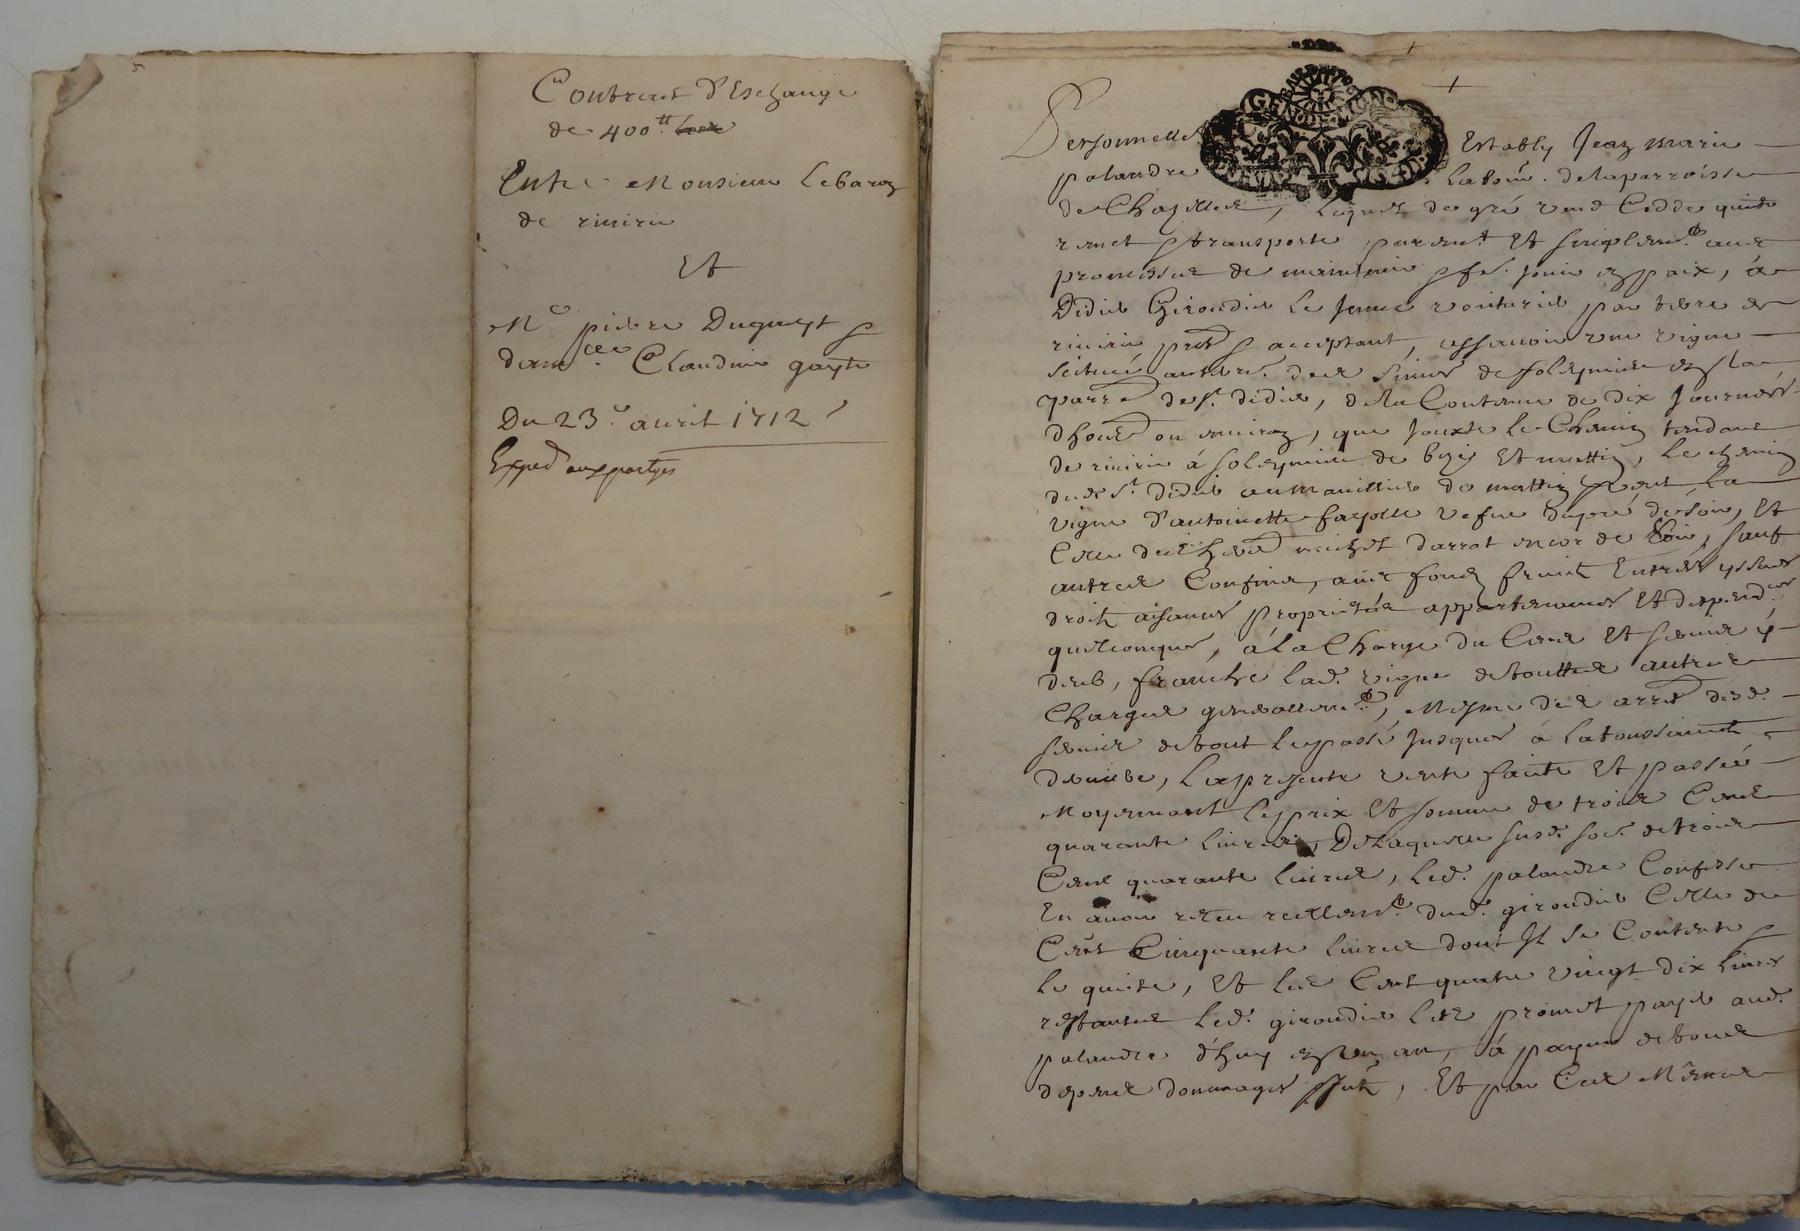 Contract d'Eschange
de 400tt
Entre Monsieur Lebaron
de rivirie
Et
Me pierre Duguest &
damlle Claudine gayte
Du 23e avril 1712
Exped aux partyes
Personnellemt Estably Jean marie
palandre labour. de la parroisse
de Chazelles, lequel de gré vend Cedde quitte
remet & transporte purement Et simplemt avec
promesse de maintenir & fe. jouir en paix, à
Didier Girondier le Jeune voiturier par terre de
rivirie pnt & acceptant, assavoir une vigne
scituée au terre. des de soleymieu en la
parre de st didier, de la Contenue de dix Journées
d'home ou environ, que Jouxte le Chemin tendant
de rivirie à soleymieu de bize Et mattin, le chemin
dud st didier au de mattin la
vigne d'antoinette fayolle vefve dupré de soir, Et
Celle de michel darrot encor de soir, sauf
autres Confins, avec fonds fruict Entrées yssues
droits aisances proprietés appartenances Et dependces
quelconques, à la Charge du Cens Et servis y
deub, franche lad. vigne de touttes autres
Charges generallemt, Mesme des arres desd.
servis de tout le passé Jusques à la toussaincts
derniere, la presente vente faite Et passée
Moyennant le prix Et somme de trois Cents
quarante livres, De laquelle susd. soe. de trois
Cent quarante livres, led. palandre Confesse
En avoir receu reellemt dud. girondier Celle de
Cent Cinquante livres dont Il se Contente &
le quitte, Et les Cent quatre vingt dix livres
restantes led. girondier les promet payer aud.
palandre d'huy en un an, à payne de tous
depens dommages Intts, Et par Ces Mêmes